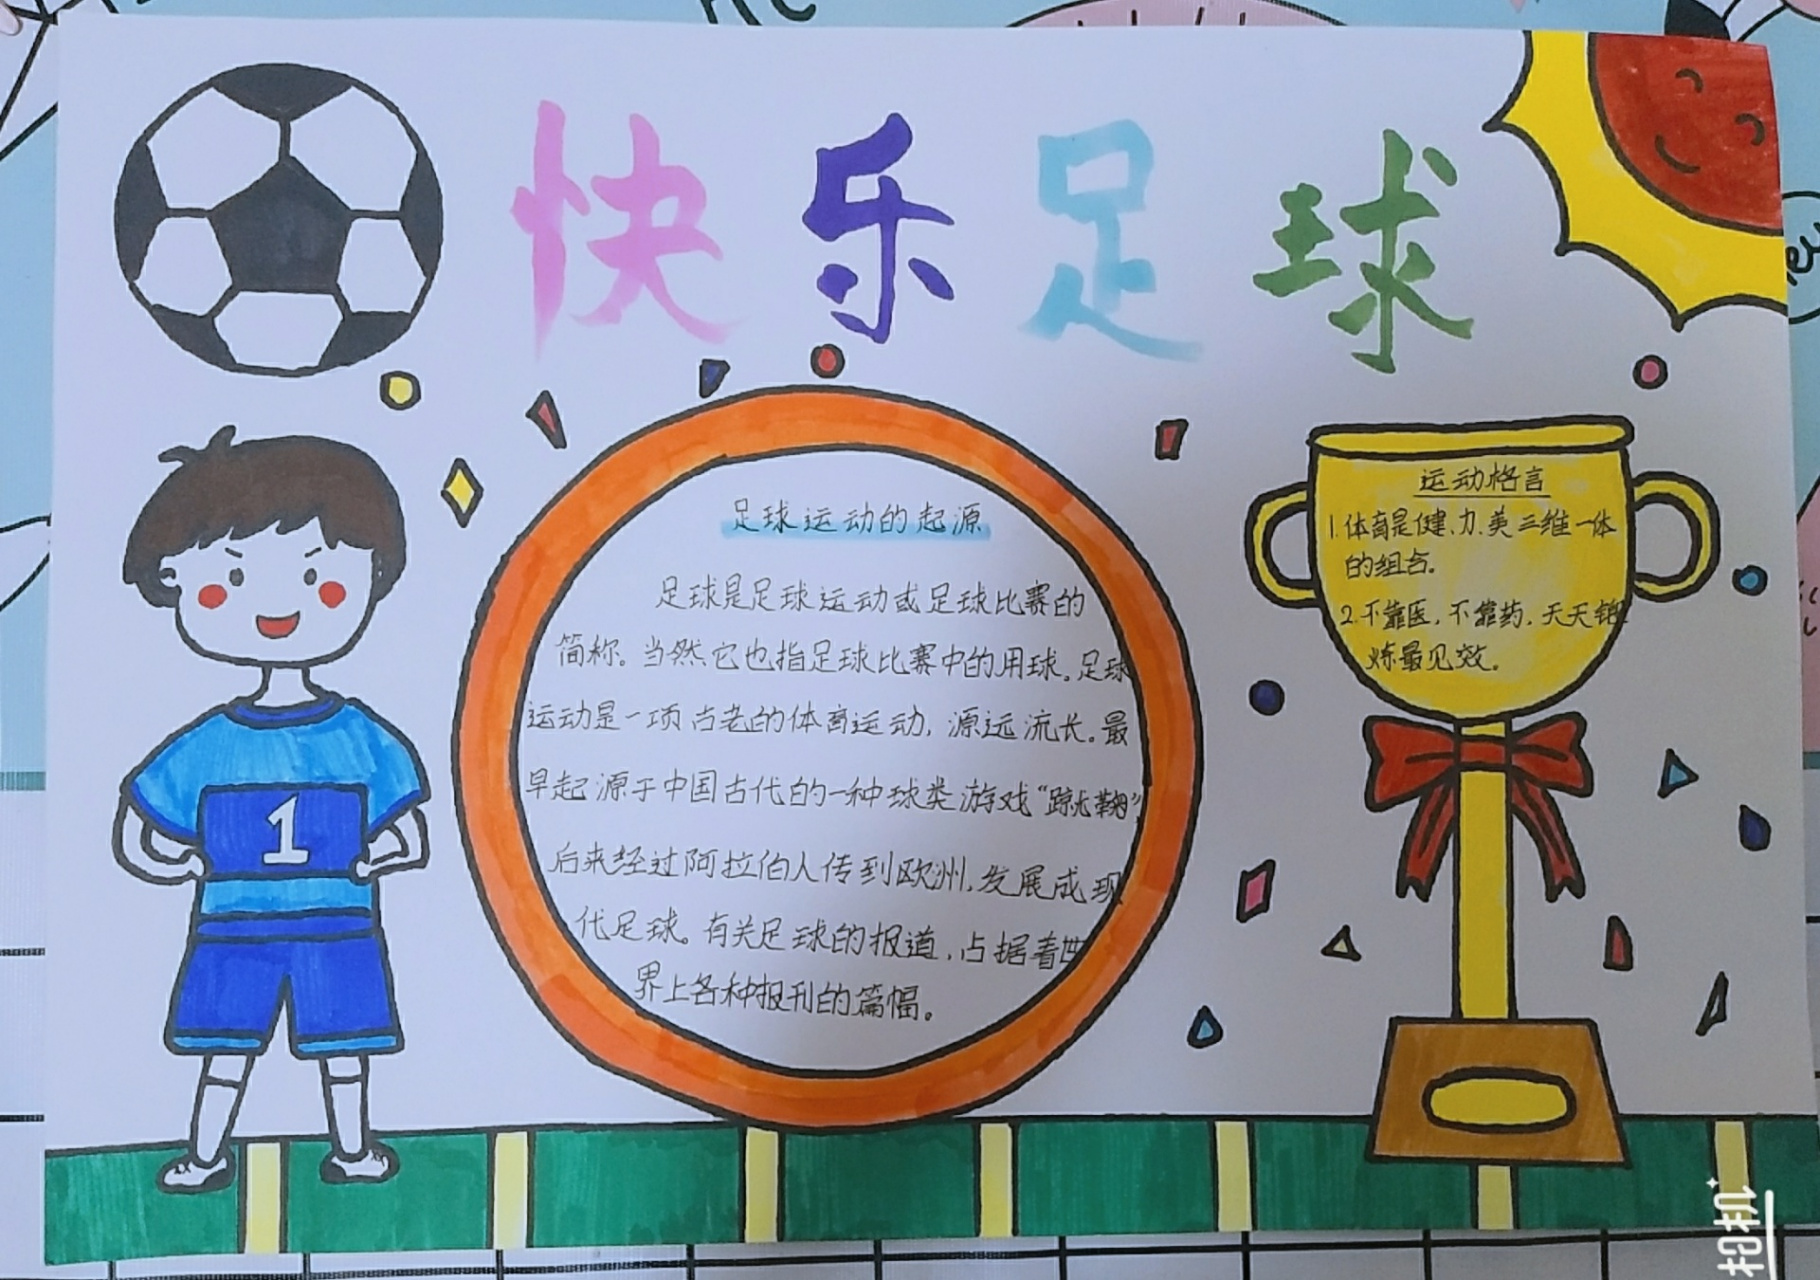 快乐足球
足球运动的起源
足球是足球运动或足球比赛的
简称。当然,它也指足球比赛中的用球。足球
运动是一项古老的体育运动,源远流长。最
早起源于中国古代的一种球类游戏“蹴鞠”,
后来经过阿拉伯人传到欧洲,发展成现
代足球。有关足球的报道,占据着世
界上各种报刊的篇幅。
运动格言
1.体育是健、力、美三维一体
的组合。
2.不靠医,不靠药,天天锻
炼最见效。
1